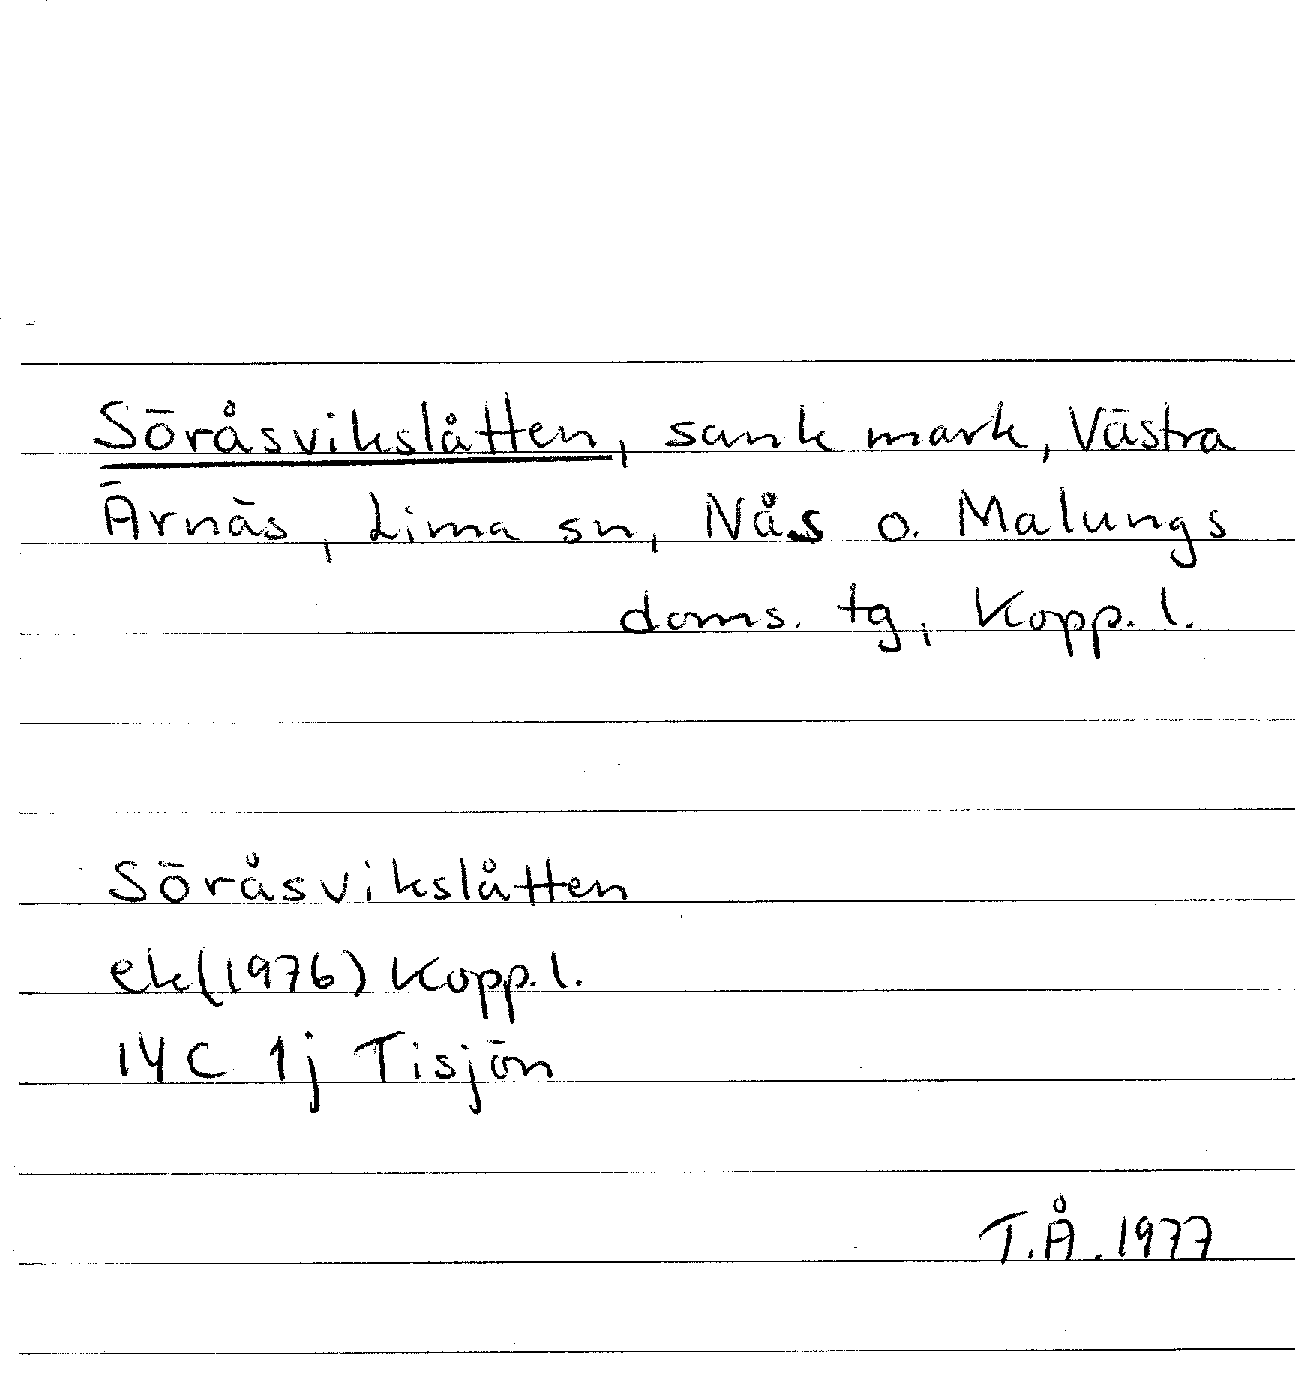 Söråsvikslåtten, sank mark, Västra
Ärnäs, Lima sn, Nås o. Malungs
doms. tg, Kopp. l.
Söråsvikslåtten
ek(1976) Kopp. l.
14C 1j Tisjön
T.Å. 1977